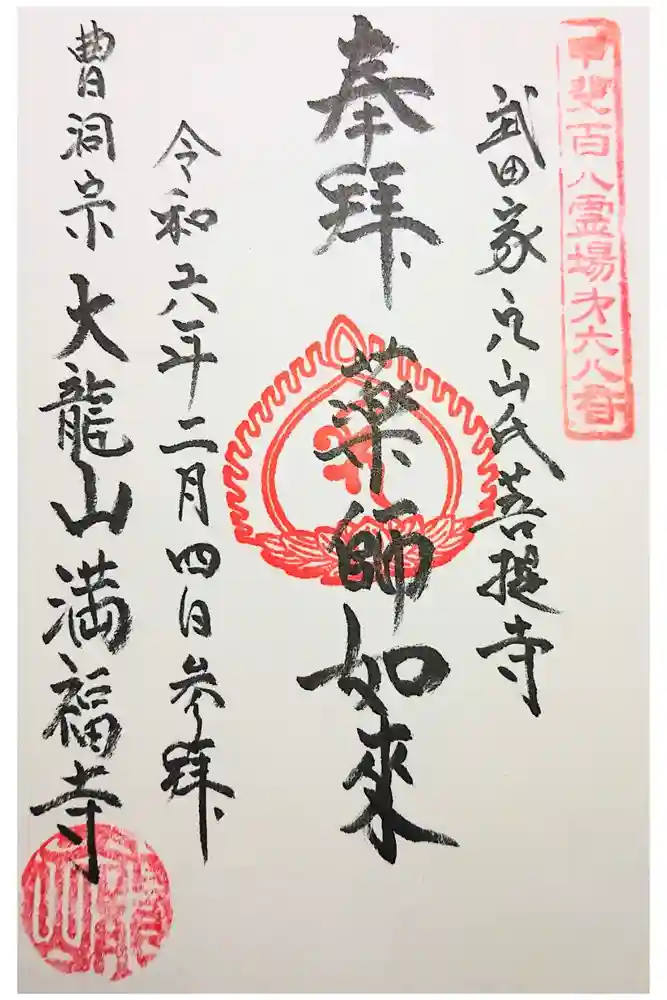 甲斐百八霊場㐧六八番
武田家穴山氏菩提寺
奉拝 薬師如來
令和六年二月四日参拝
曹洞宗 大龍山満福寺